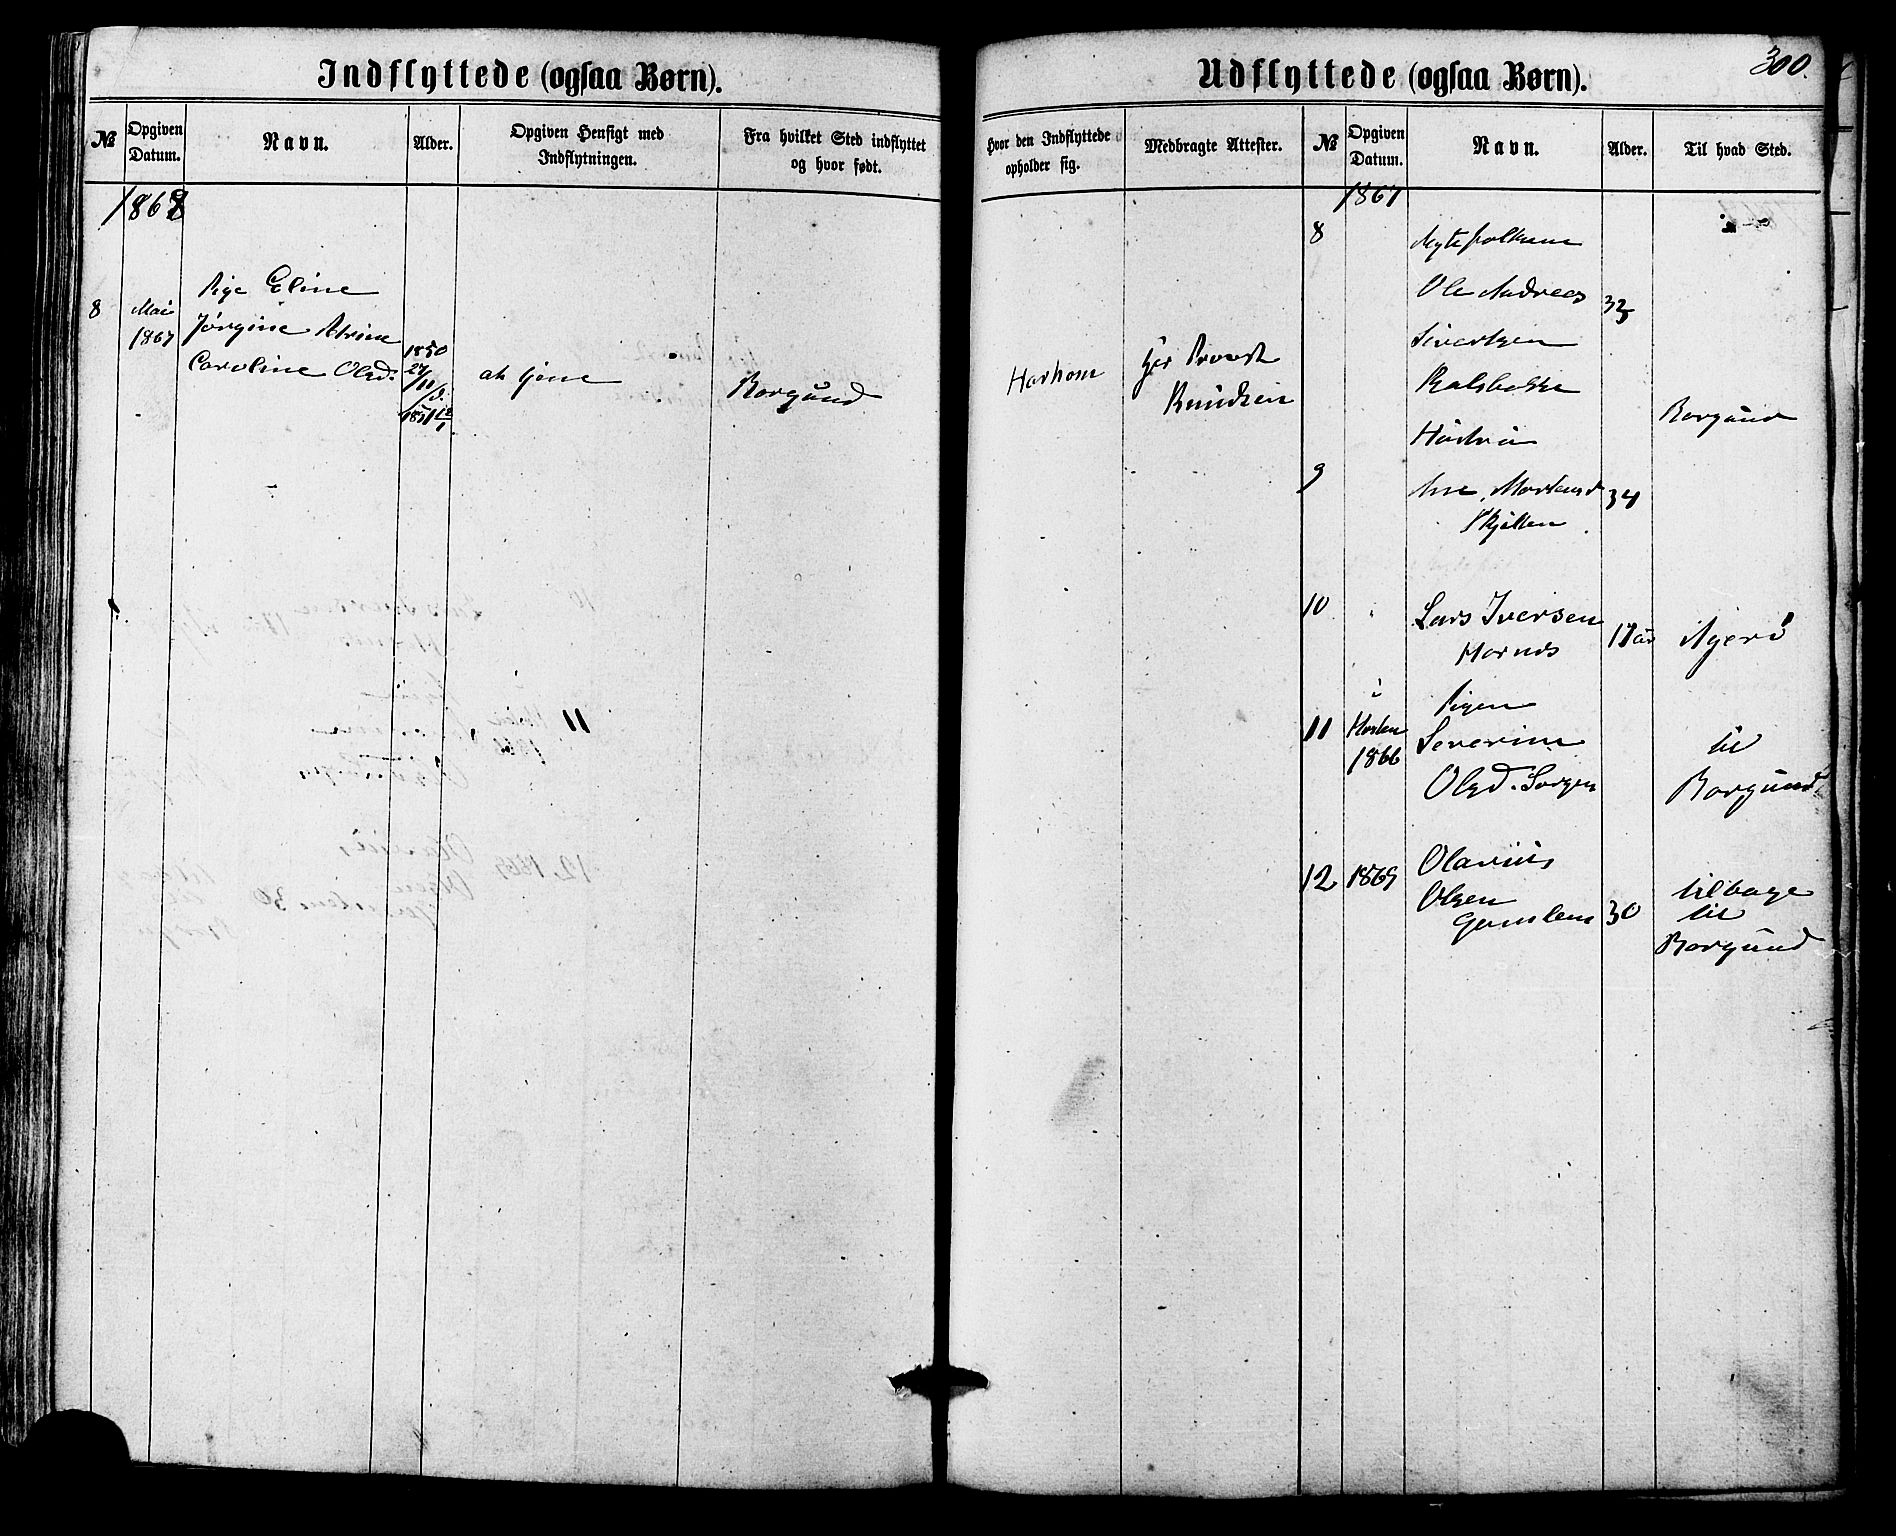 Indflyttede (ogsaa Børn).
№
Opgiven Datum.
Navn.
Alder.
Opgiven Hensigt med Indflytningen.
Fra hvilket Sted indflyttet og hvor født.
1868
8
Mai
1867
Pige Eline
Jørgine
Caroline Olsd.
1850
1851
at tjene
Borgund
Udflyttede (ogsaa Børn).
300.
Hvor den Indflyttede opholder sig.
Medbragte Attester.
№
Opgiven Datum.
Navn.
Alder.
Til hvad Sted.
Harhom
Provst
Knudsen
1867
8
Ole Andreas
Sivertsen
33
Borgund
9
34
10
Lars Iversen
17 aar
11
i
Høsten
1866
Pigen
Severine
Olsd.
til
Borgund
12
1869
Olavius
Olsen
Gamlem
30
tilbage
til
Borgund